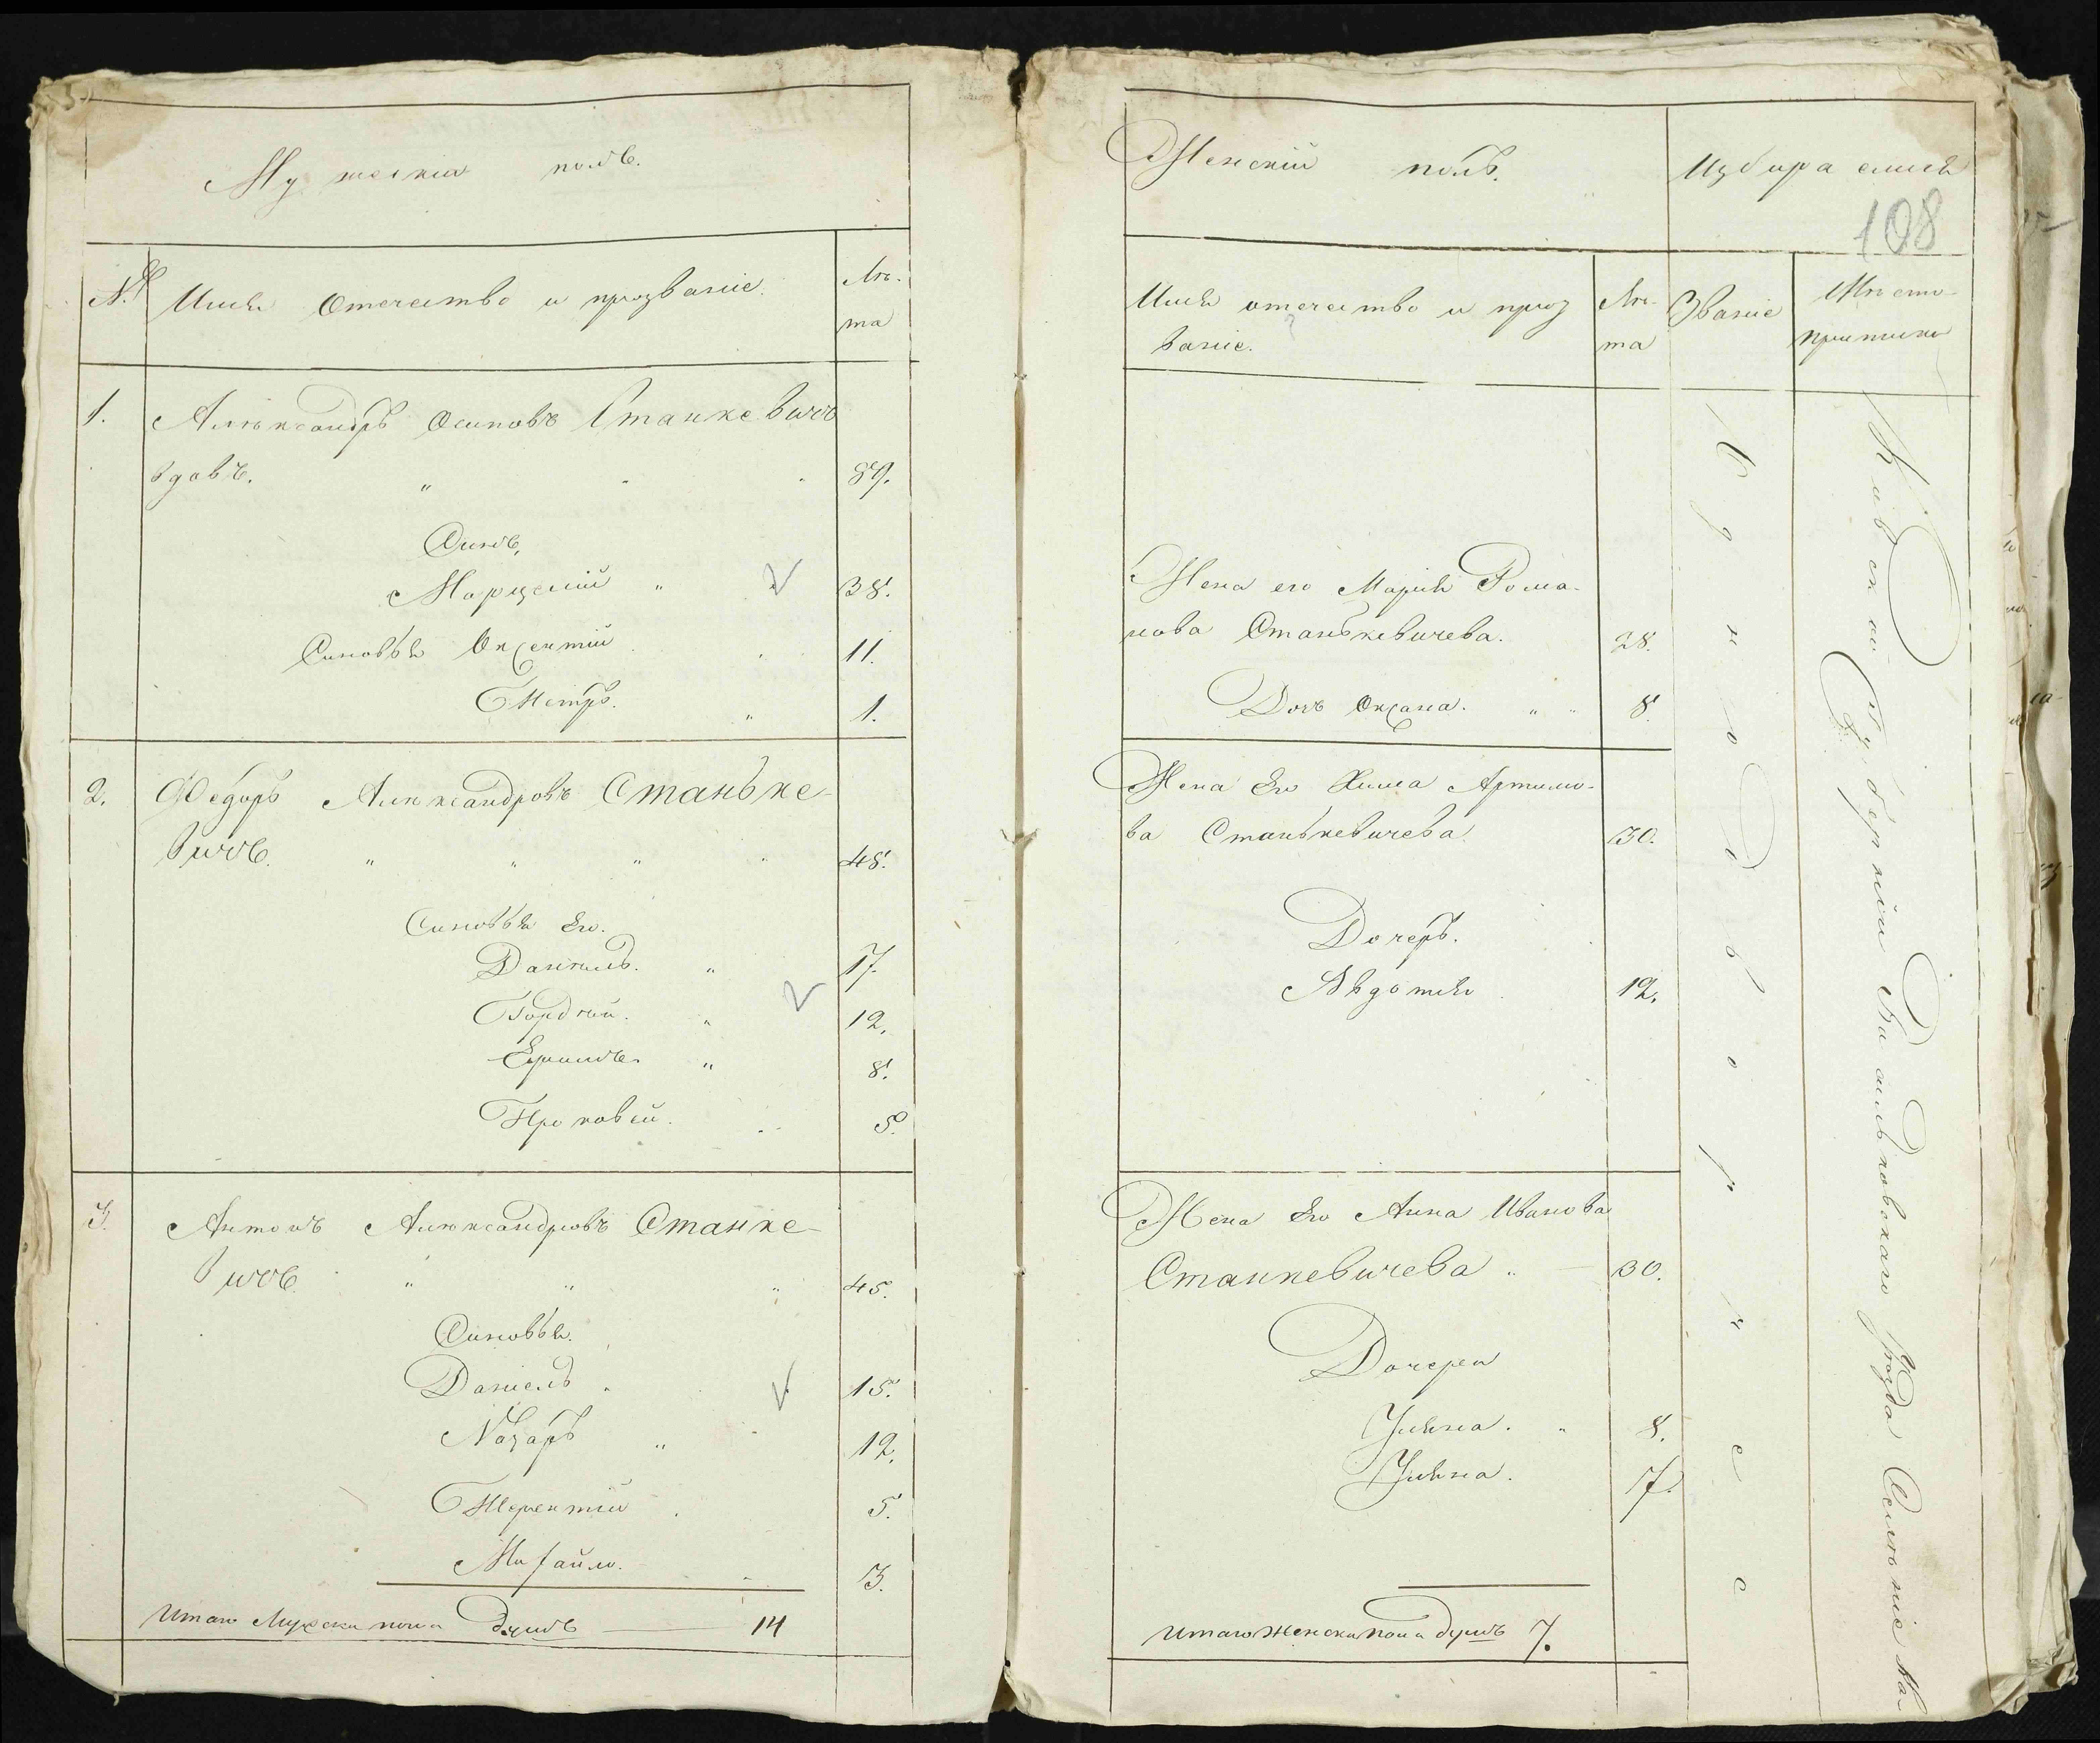 Мужескій полъ.
№ Имя Отечество и прозваніе. Лѣ-
та
1. Алѣксандръ Осиповъ Станкевичъ
вдовъ. " 89.
Синъ,
Марцелій " 38.
Синовья Оксентій 11.
Петръ. " 1.
2. Федоръ Алѣксандровъ Станьке-
вичъ. " " " " 48.
Синовья Его.
Данилъ. " 17.
Гордій. " 12.
" 8.
Проковей. 5.
3. Антонъ Алѣксандровъ Станке-
вичъ " " " 45.
Синовья.
Даніелъ 15.
Назаръ " 12.
Терентій 5.
Михайло. 3.
Итаго Мужеска пола Душъ — 14
Женскій полъ.
108
Имя отечество и проз
ваніе.
Лѣ-
та
Званіе
Мѣсто
Жена его Марія Рома-
нова Станькевичева. 28.
Дочь Оксана. " " 8.
Жена Его Хима Артимо-
ва Станькевичева 30.
Дочерь.
Авдотія 12.
Жена Его Анна Иванова
Станкевичева " — 30.
Дочери
Уляна. " 8.
Уляна. 7.
Итаго Женска пола душъ 7.
Однодворческое
Кивской Губерніи Васильковского уѣзда Селѣніе Ма-